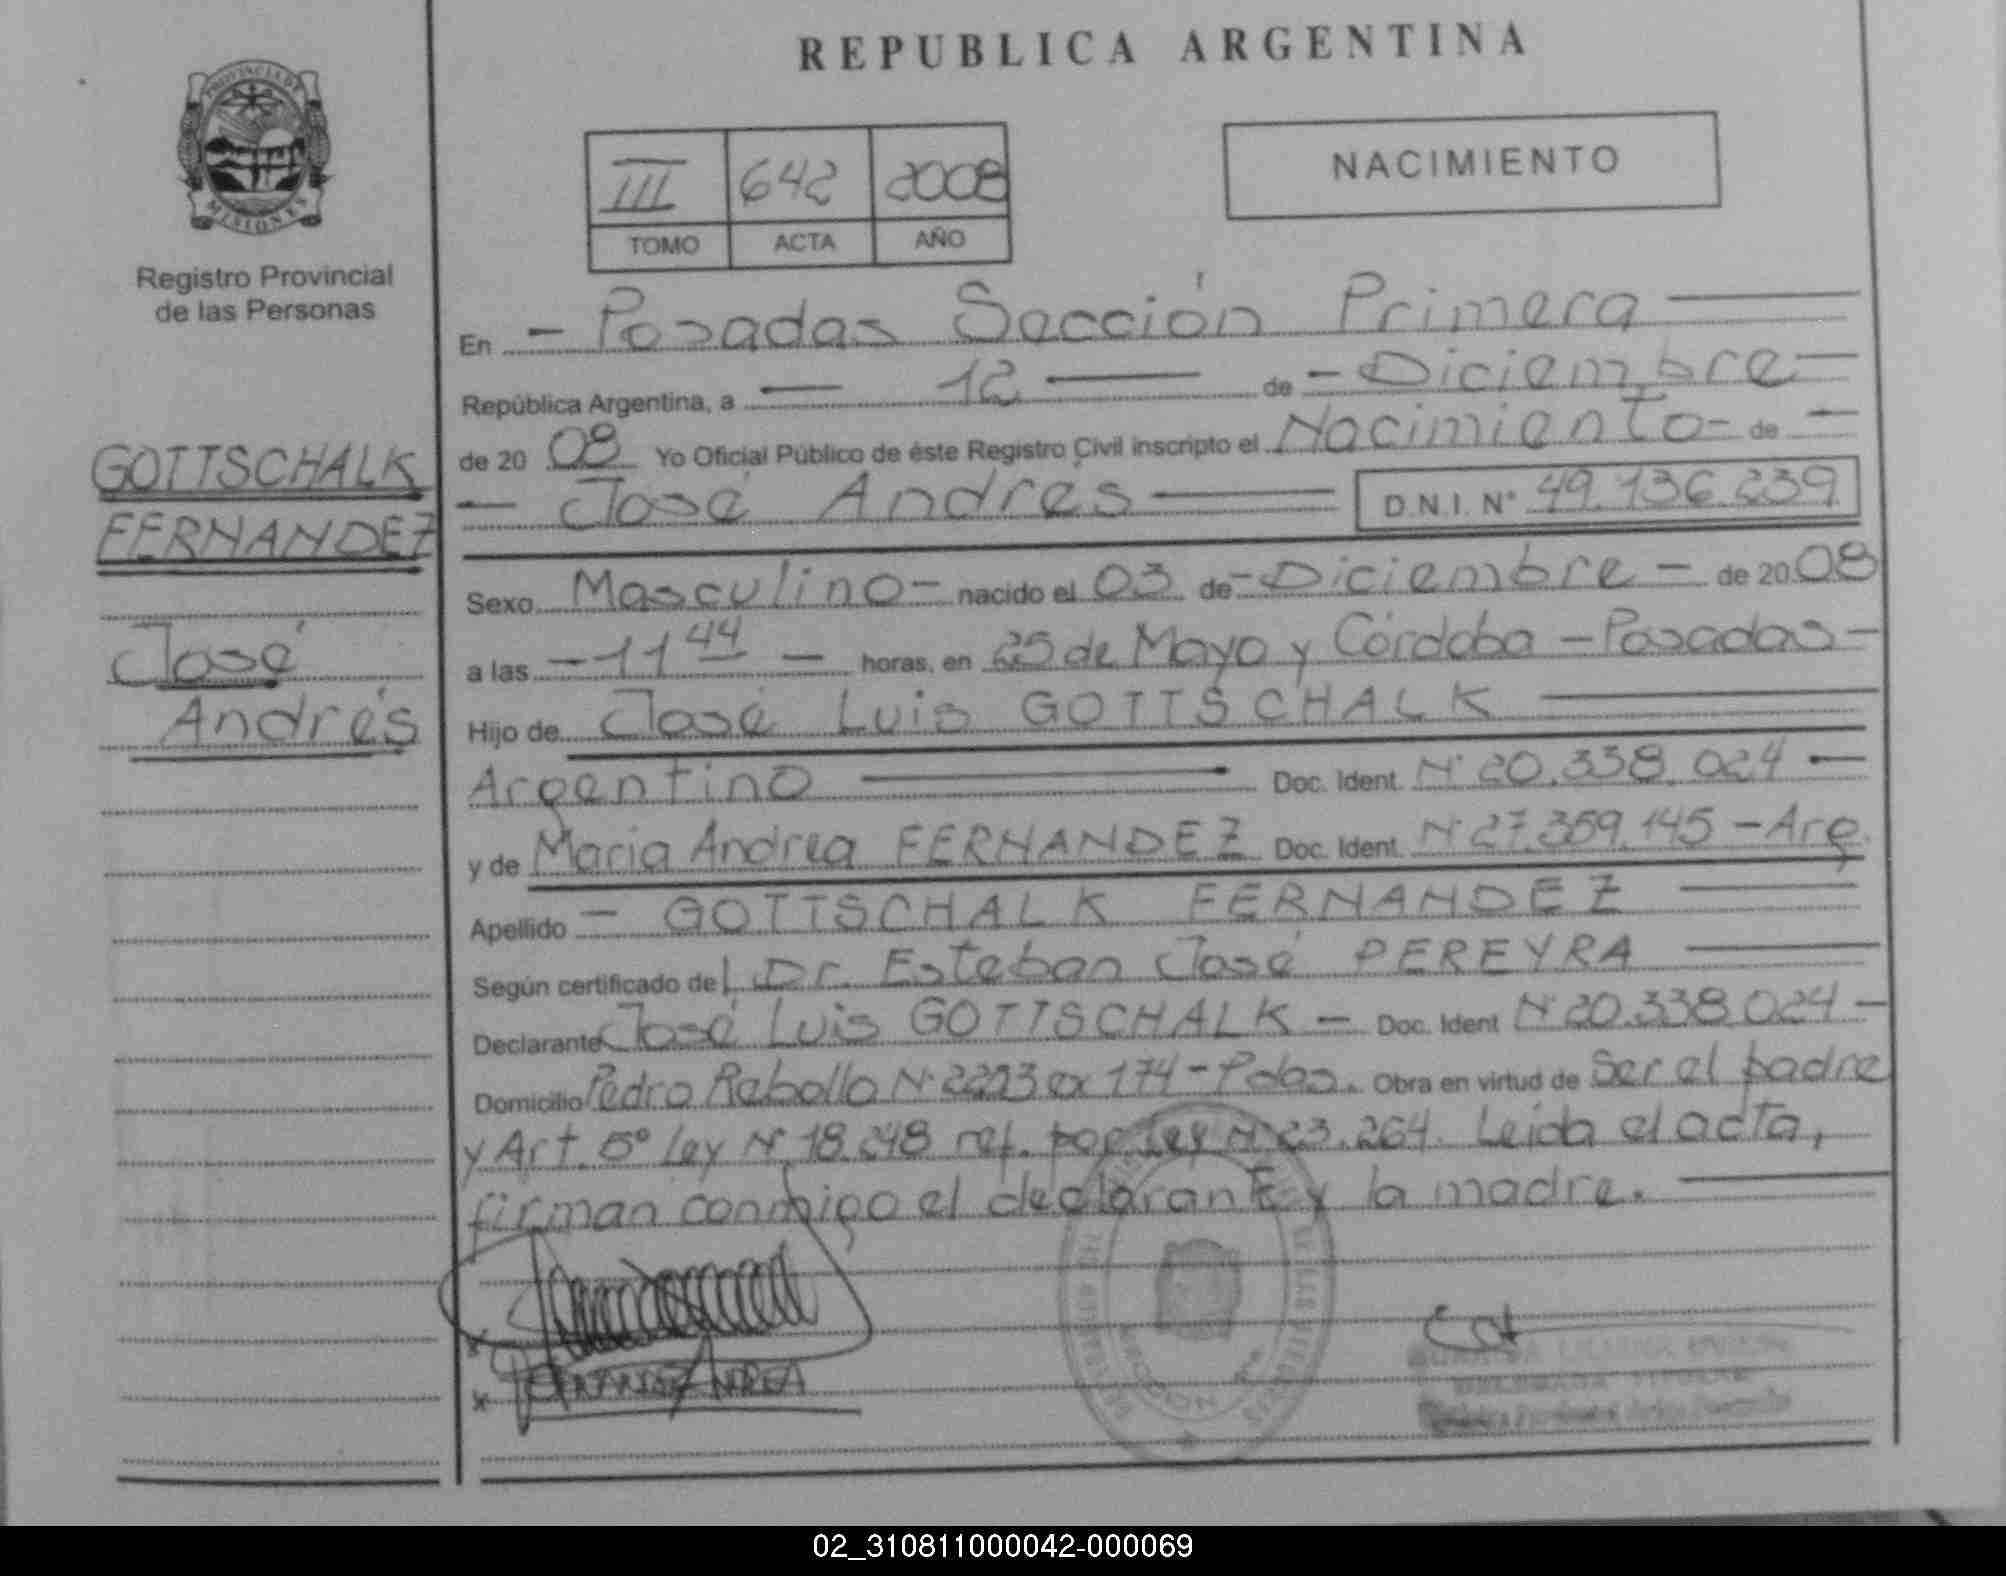 REPUBLICA ARGENTINA
PROVINCIA DE
MISIONES
Registro Provincial
de las Personas
III 642 2008
TOMO ACTA AÑO
NACIMIENTO
GOTTSCHALK
FERNANDEZ
José
Andrés
En - Posadas Sección Primera
República Argentina, a 12 de - Diciembre
de 20 08 Yo Oficial Público de éste Registro Civil inscripto el Nacimiento - de -
José Andrés D.N.I. N° 49.136.239
Sexo Masculino - nacido el 03 de - Diciembre - de 20 08
a las - 11 44 - horas, en 25 de Mayo y Córdoba - Posadas -
Hijo de José Luis GOTTSCHALK
Argentino Doc. Ident. N° 20.338.024 -
y de Maria Andrea FERNANDEZ Doc. Ident. N° 27.359.145 - Arg.
Apellido - GOTTSCHALK FERNANDEZ
Según certificado del Dr. Esteban José PEREYRA
Declarante José Luis GOTTSCHALK - Doc. Ident N° 20.338.024 -
Domicilio Pedro Rebollo N° 2203 ex 174 - Pdas. Obra en virtud de Ser el padre
y Art. 5° Ley N° 18.248 ref. por Ley N° 23.264. Leída el acta,
firman conmigo el declarante y la madre.
x
x FERNANDEZ ANDREA
02_310811000042-000069